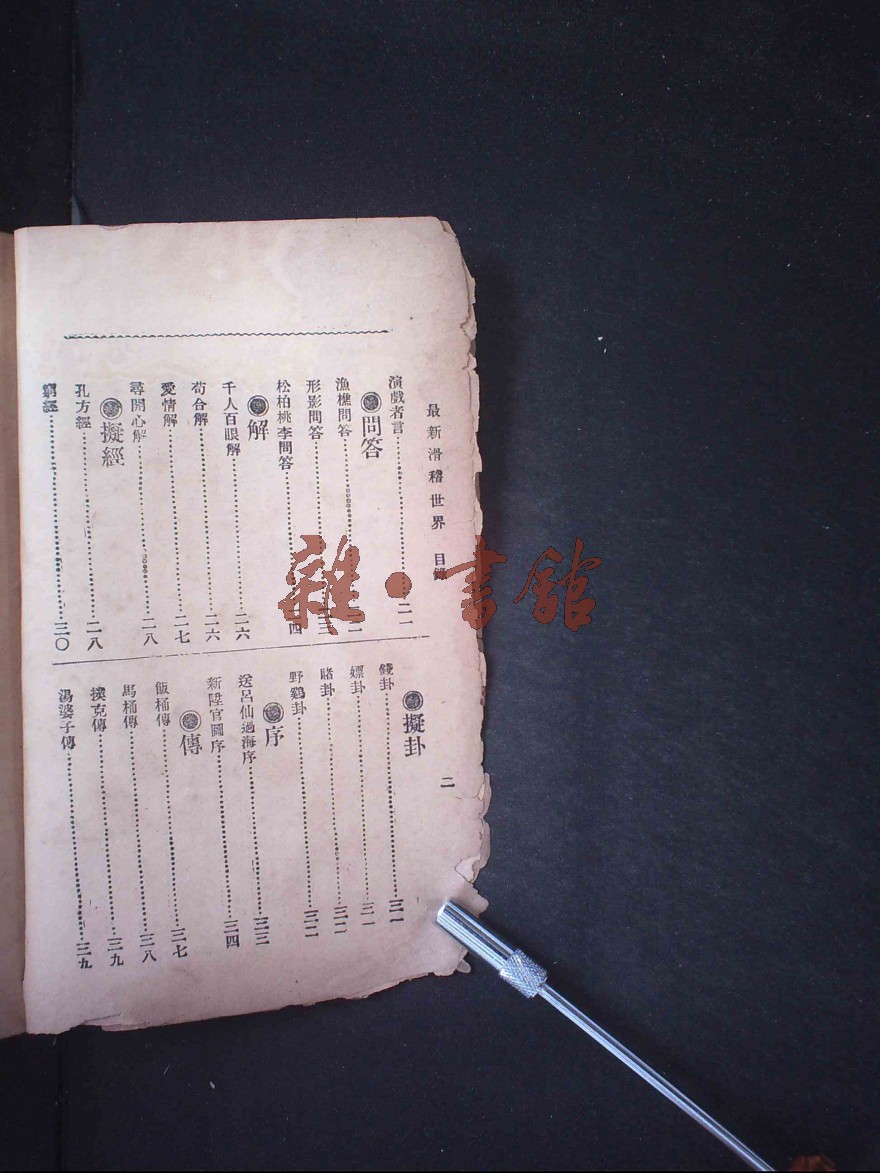 最新滑稽世界 目錄 二
演戲者言 二一
問答
漁樵問答
形影問答
松柏桃李問答 四
解
千人百眼解 二六
苟合解 二六
愛情解 二七
尋開心解 二八
擬經
孔方經 二八
窮經 三〇
擬卦
錢卦 三一
嫖卦 三一
賭卦 三二
野鷄卦 三二
序
送呂仙過海序 三三
新陞官圖序 三四
傳
飯桶傳 三七
馬桶傳 三八
撲克傳 三九
湯婆子傳 三九
雜·書館